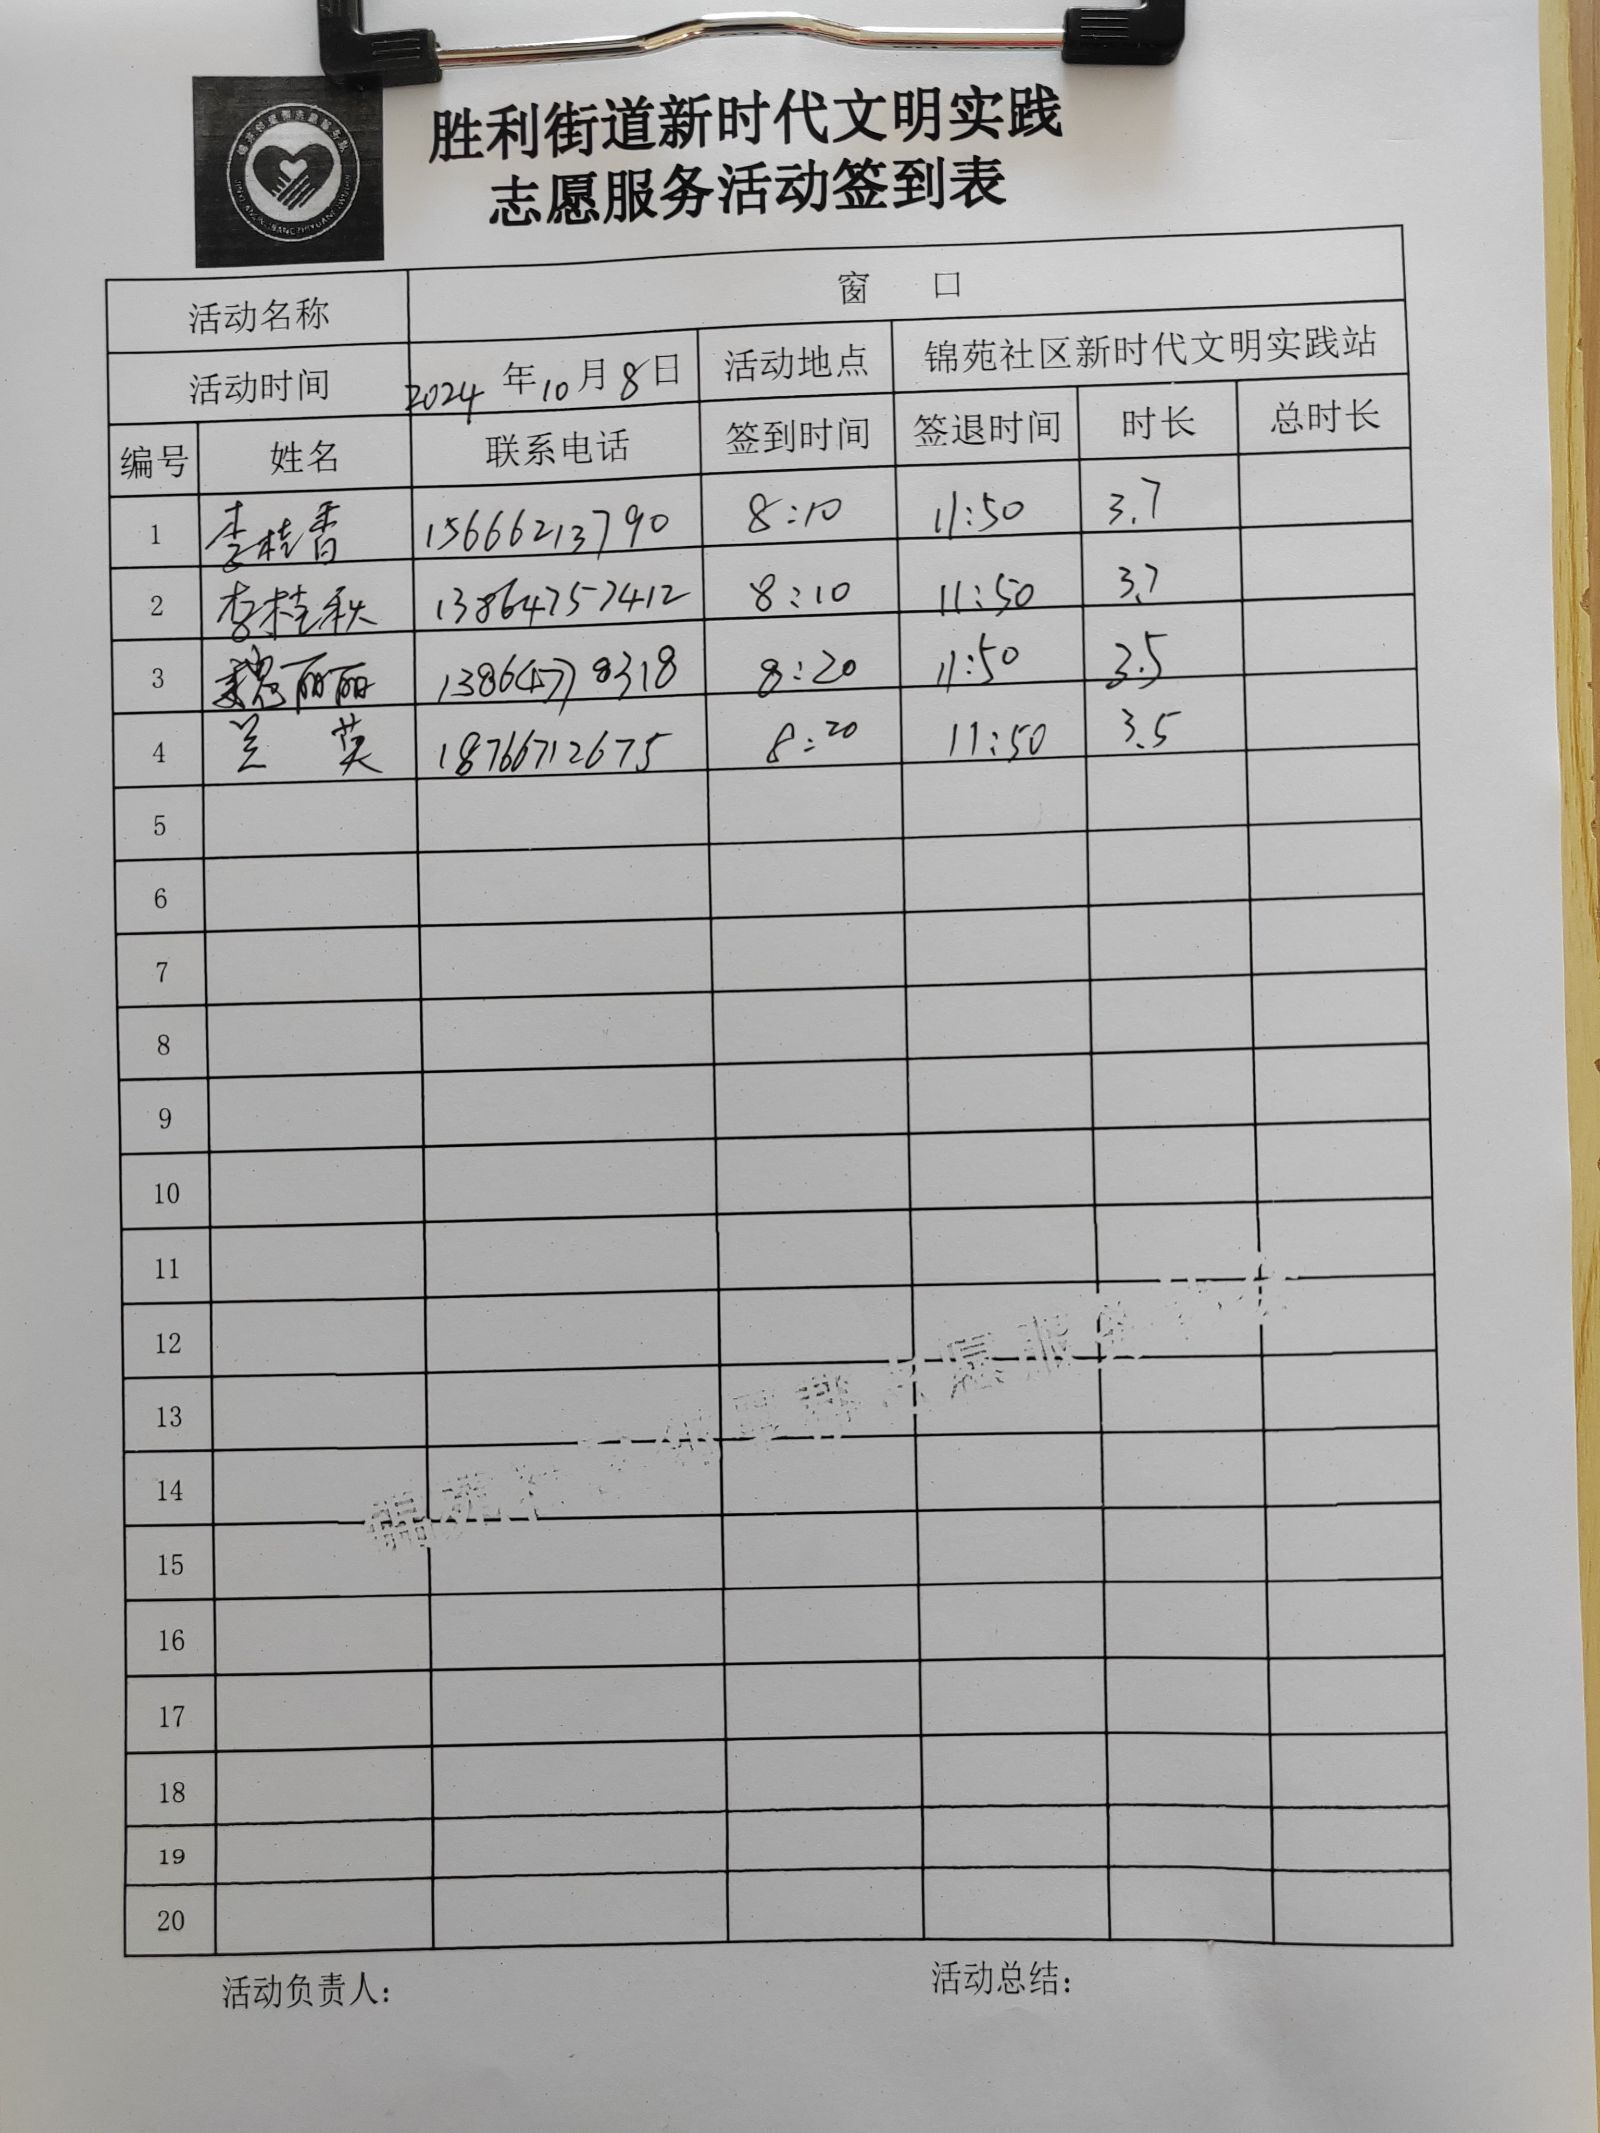 胜利街道新时代文明实践
志愿服务活动签到表
活动名称 窗 口
活动时间 2024 年 10 月 8 日 活动地点 锦苑社区新时代文明实践站
编号 姓名 联系电话 签到时间 签退时间 时长 总时长
1 李桂香 15666213790 8:10 11:50 3.7
2 李桂秋 13864757412 8:10 11:50 3.7
3 魏丽丽 13864778318 8:20 11:50 3.5
4 兰英 18766712675 8:20 11:50 3.5
5
6
7
8
9
10
11
12
13
14
15
16
17
18
19
20
活动负责人: 活动总结: